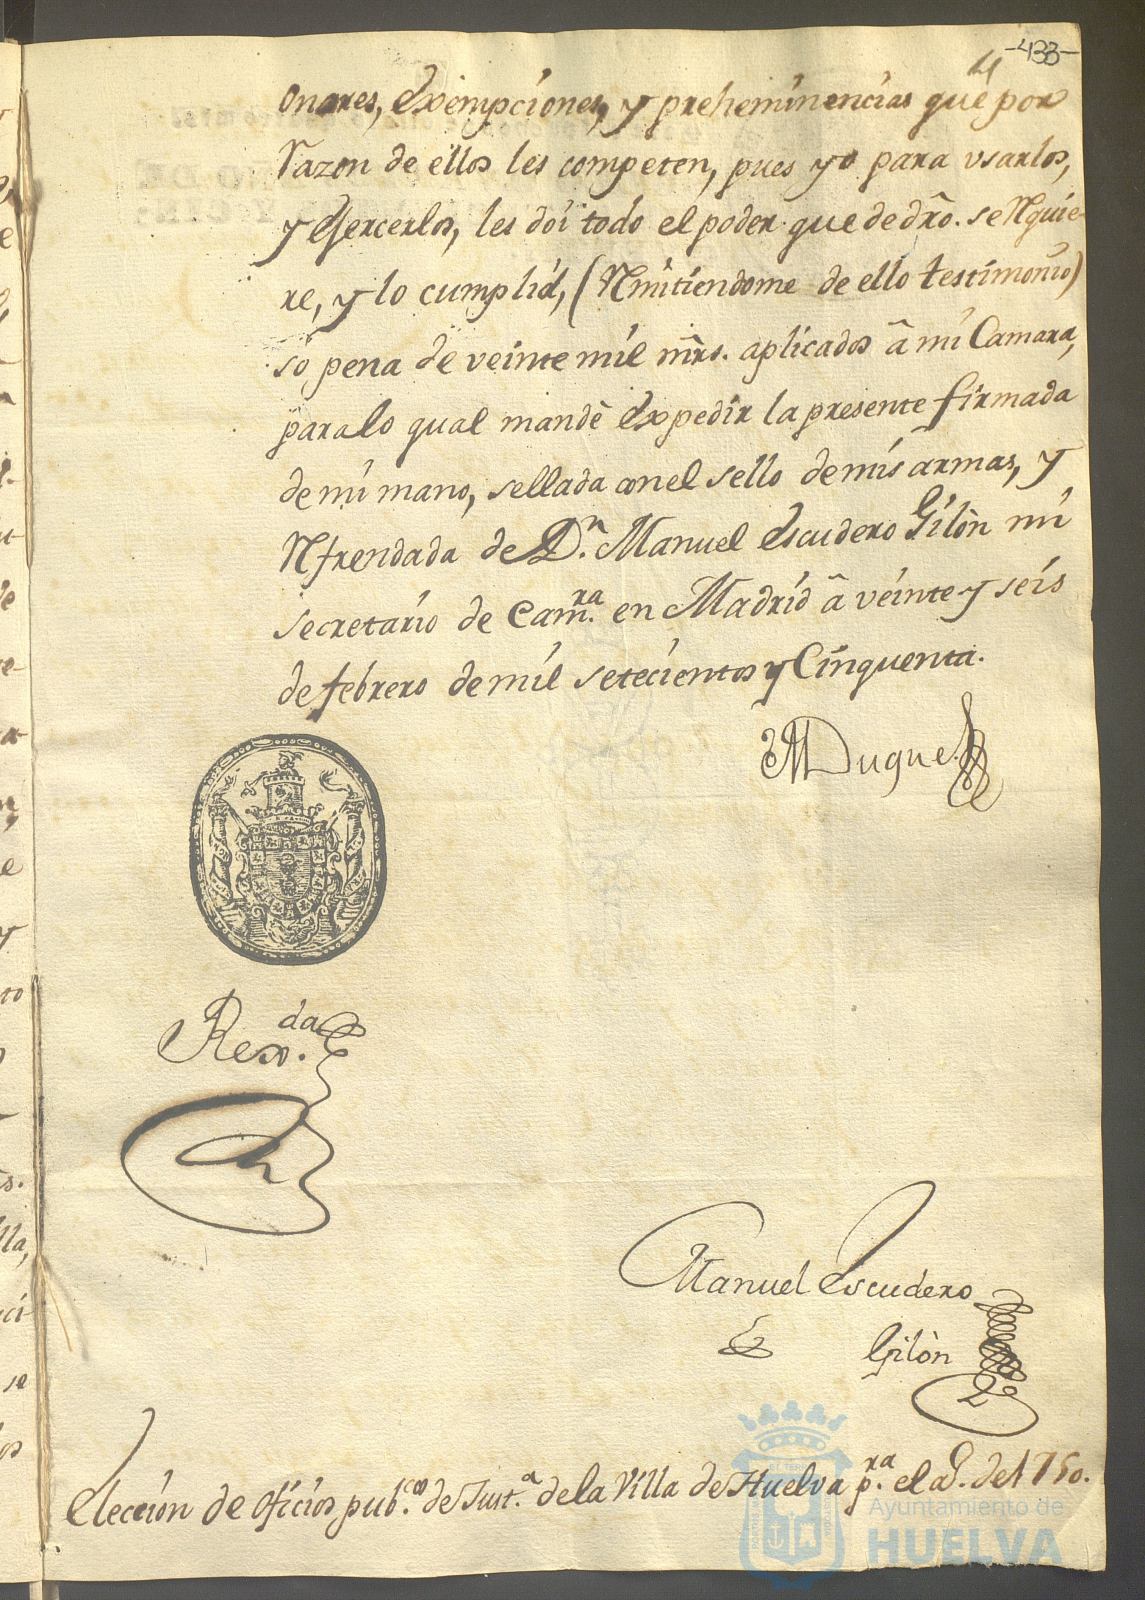 -433-
4
onores, exempciones, y preheminencias que por
razon de ellos les competen, pues yo para vsarlos,
y exercerlos, les doi todo el poder que de dro. se rquie-
re, y lo cumplid, (Rmitiendome de ello testimonio)
so pena de veinte mil mrs. aplicados â mi Camara,
para lo qual mandè expedir la presente firmada
de mi mano, sellada con el sello de mis armas, y
Rfrendada de Dn. Manuel Escudero Gilòn mi
secretario de Camra. en Madrid â veinte y seis
de febrero de mil setecientos y Cinquenta.
El Duque
Rexda.
Manuel Escudero
Gilòn
Elección de oficios pubcos. de Justa. de la Villa de Huelva pra. el aº. de 1750.
Ayuntamiento de
HUELVA